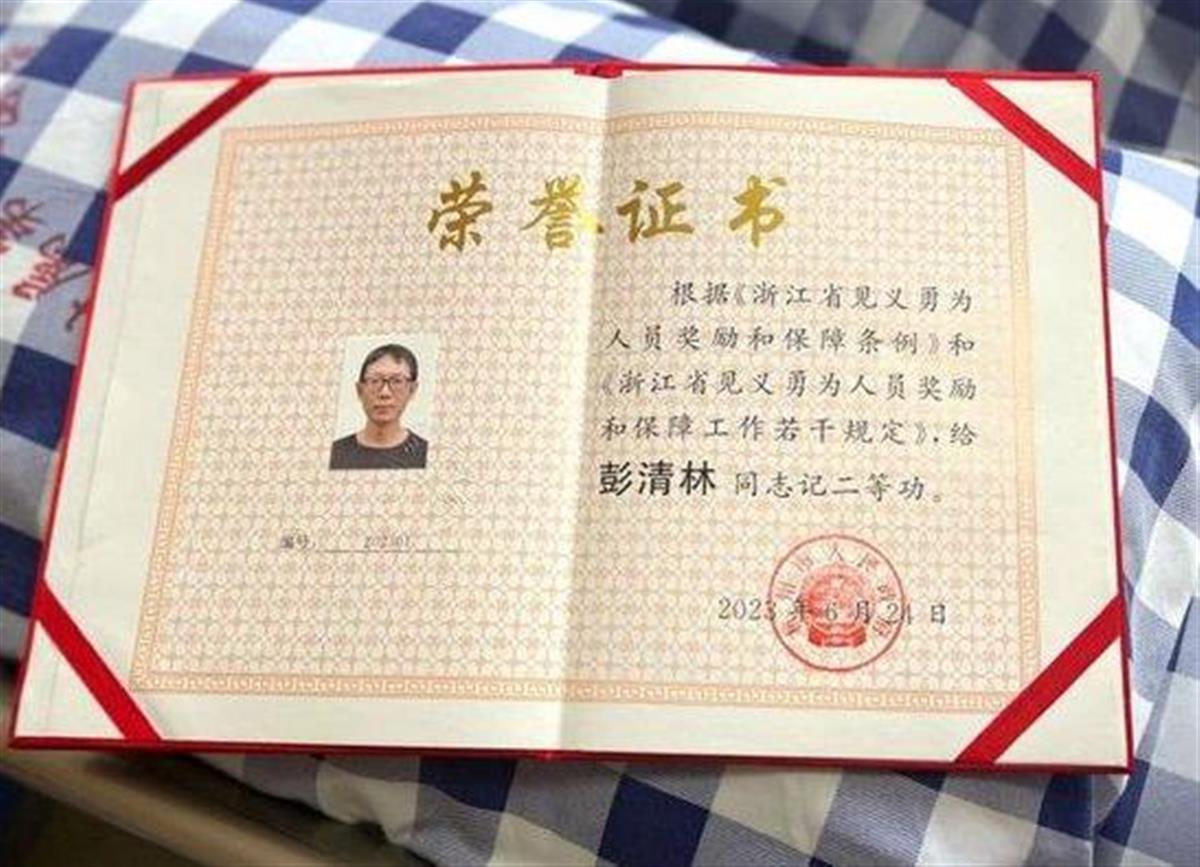 荣誉证书
根据《浙江省见义勇为
人员奖励和保障条例》和
《浙江省见义勇为人员奖励
和保障工作若干规定》,给
彭清林 同志记二等功。
编号:
2023年6月24日
市人民政